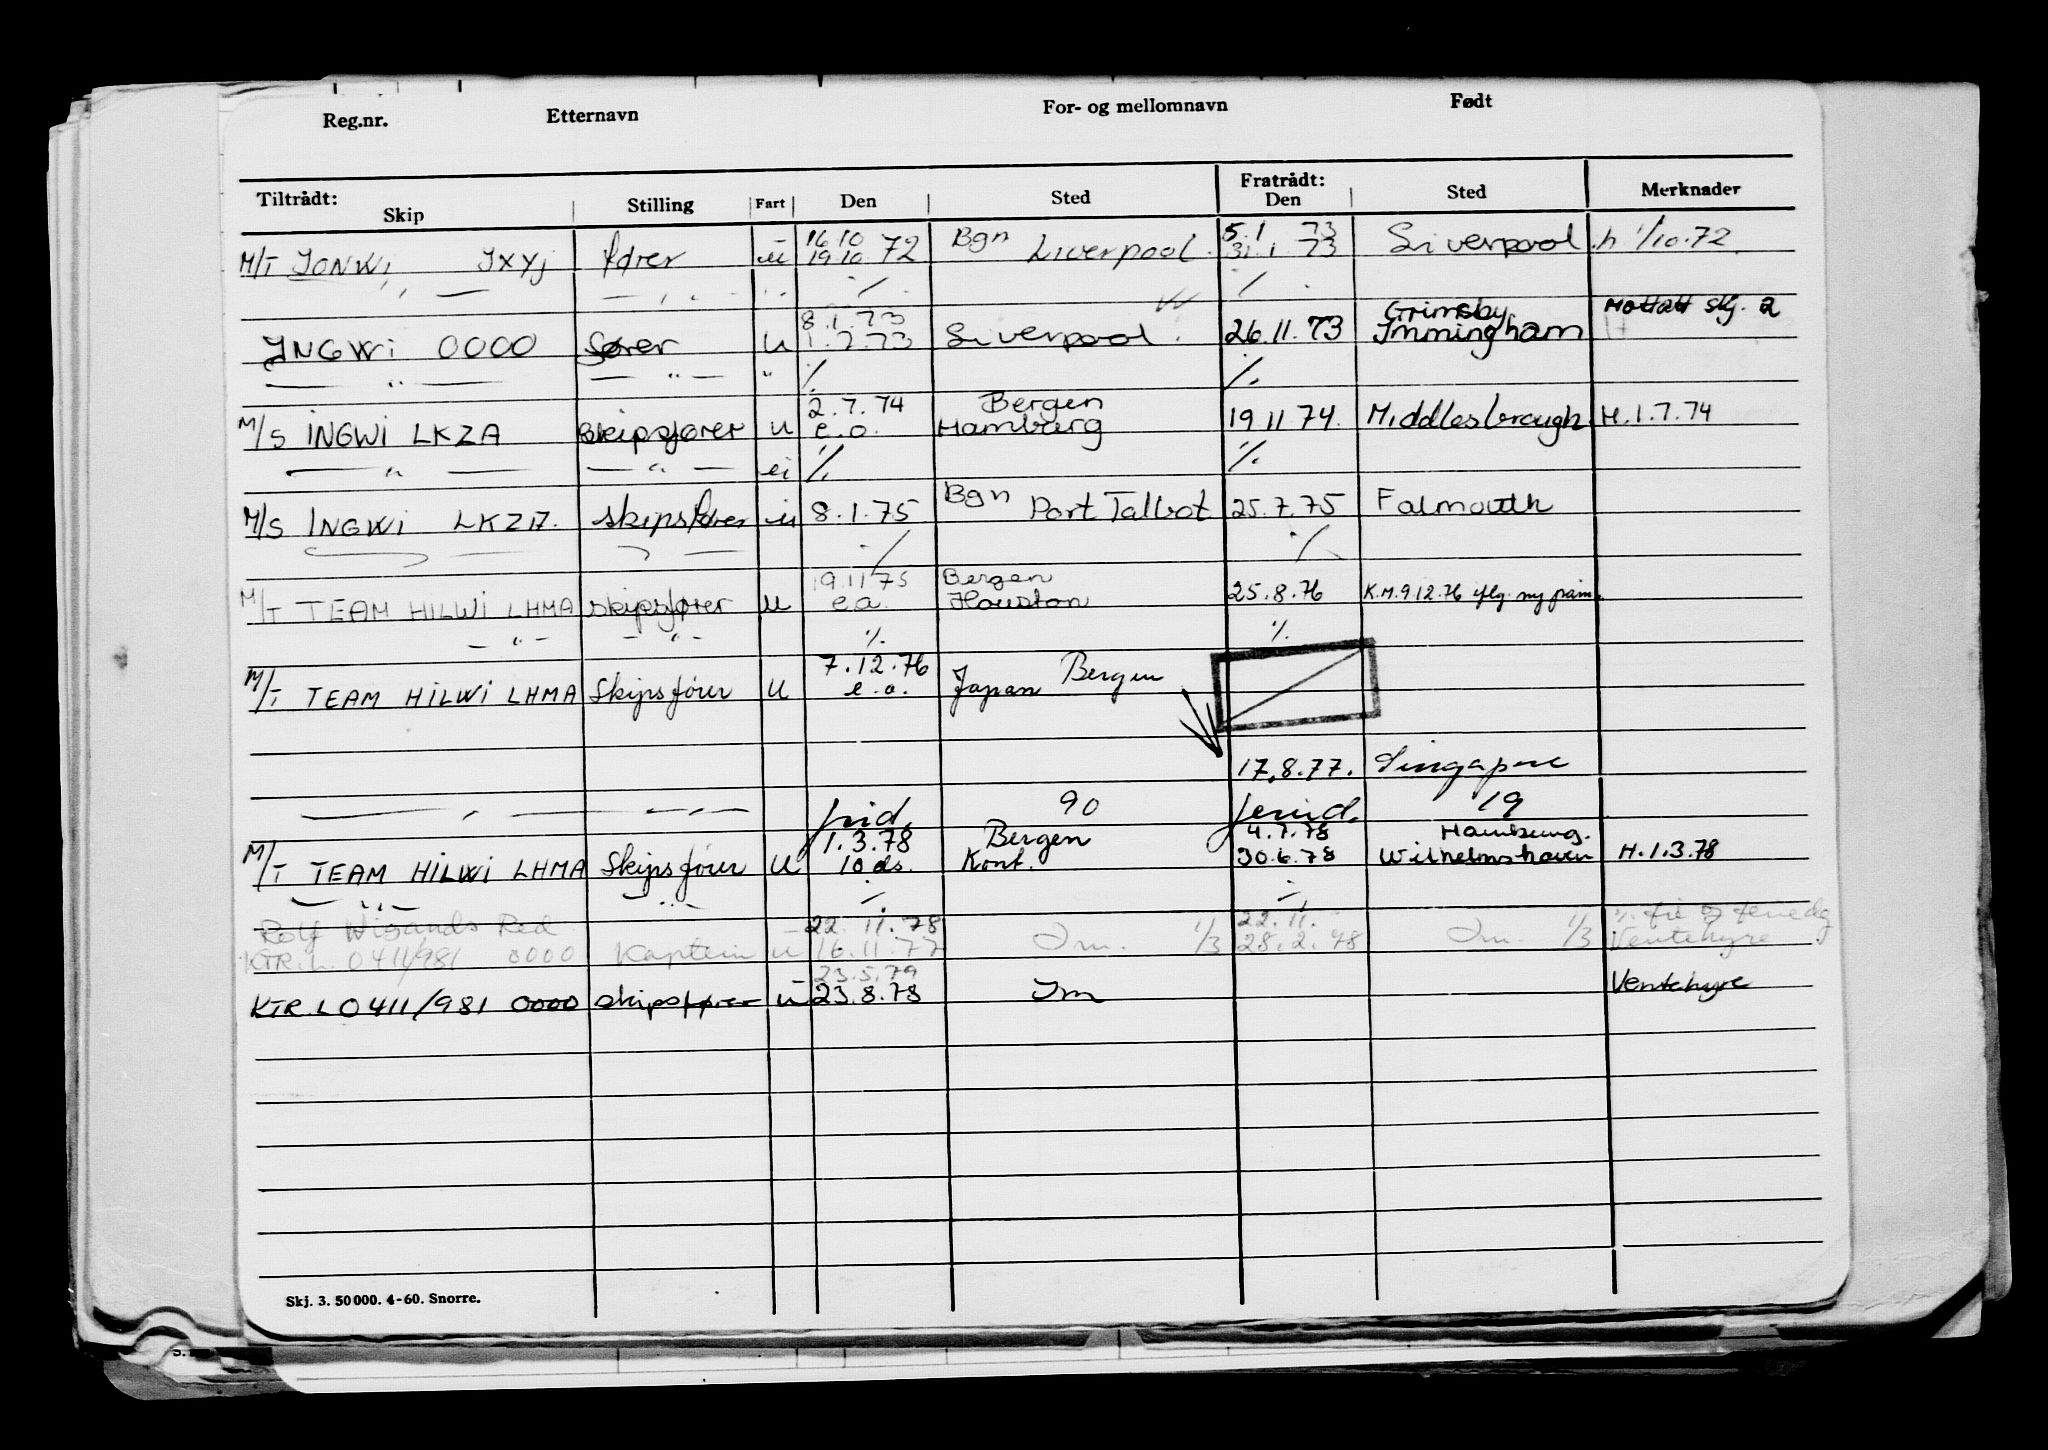 Reg.nr. Etternavn For- og mellomnavn Født
Tiltrådt: Skip Stilling Fart Den Sted Fratrådt: Den Sted Merknader
16.10 Bgn 5.1 73
M/T JONWi JXYJ fører u 19.10.72 Liverpool. 31.1.73 Liverpool h 1/10.72
— " — — " — " ./. ./.
8.1.73 Grimsby Mottatt skj. 2
INGWi 0000 fører u 1.2.73 Liverpool. 26.11.73 Immingham
— " — — " — " ./. ./.
2.7.74 Bergen
M/S INGWI LKZA Skipsfører u e.o. Hamburg 19.11.74 Middlesbrough H.1.7.74
— " — — " — ei ./. ./.
Bgn
M/S INGWi LKZA. skipsfører u 8.1.75 Port Talbot 25.7.75 Falmouth
./. ./.
19.11.75 Bergen
M/T TEAM HILWi LHMA skipsfører u e.o. Houston 25.8.76 K.M.9.12.76 iflg. ny påm.
— " — — " — ./. ./.
7.12.76 Bergen
M/T TEAM HILWi LHMA Skipsfører u e.o. Japan
17.8.77. Singapore
— " — — " — frid. 90 feried. 19
1.3.78 Bergen 4.7.78 Hamburg.
M/T TEAM HILWi LHMA Skipsfører u 10 ds. Kont. 30.6.78 Wilhelmshaven H.1.3.78
— " — — " — ./. ./.
Rolf Wigands Red 22.11.78 22.11. ./. fri og feriedg
KTR.L.0411/981 0000 Kaptein u 16.11.77 Im. 1/3 28.2.78 Im. 1/3 Ventehyre
23.5.79
KTR.L0411/981 0000 skipsfører u 23.8.78 Im Ventehyre
Skj. 3. 50 000. 4-60. Snorre.